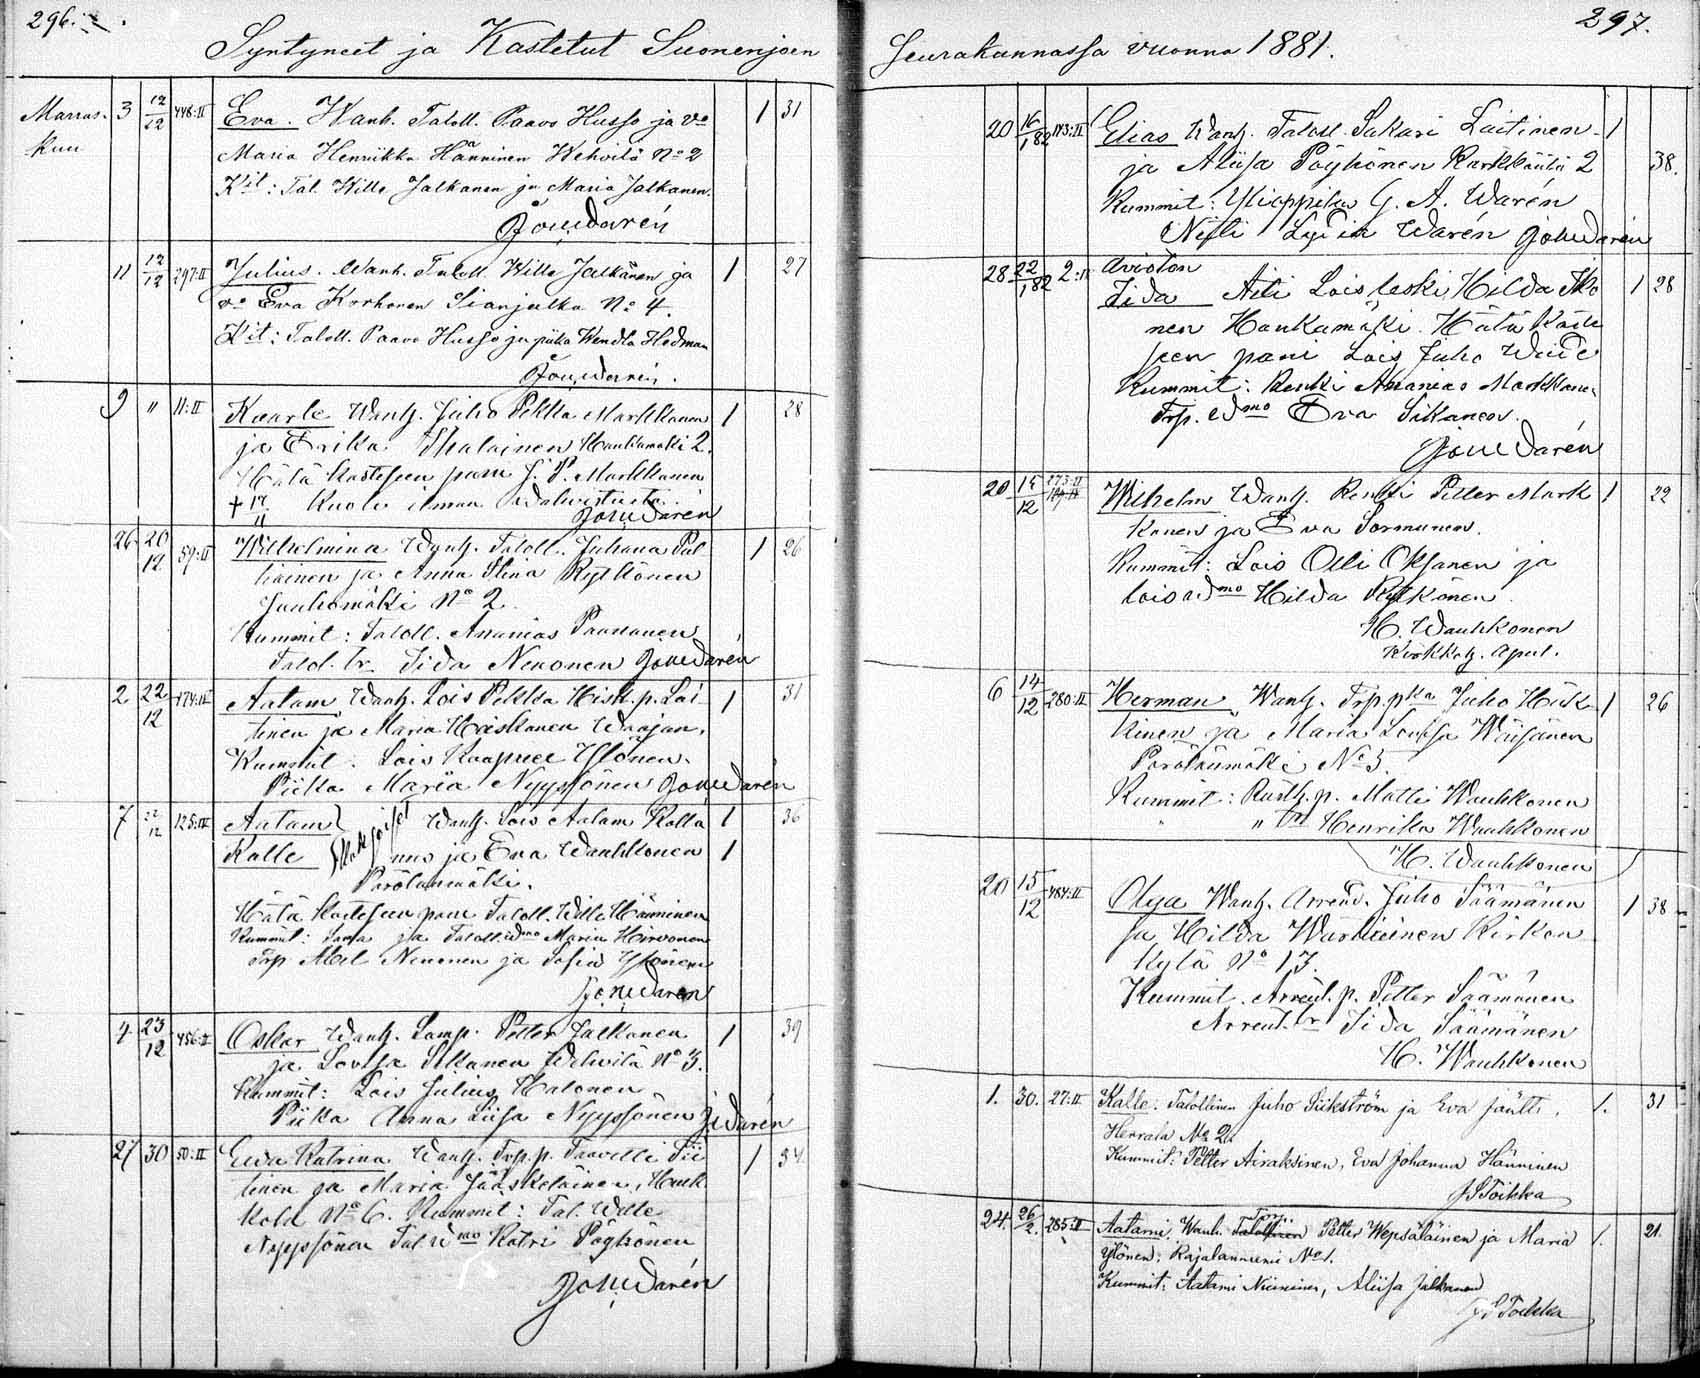 296.
Syntyneet ja Kastetut Suonenjoen
Marras-
kuu
3 12/12 448:II Eva. Wanh. Taloll. Paavo Husso ja vo 1 31
Maria Henrikka Hänninen Wehvilä No 2
Kit: Tal. Wille Jalkanen ja Maria Jalkanen.
Warén
11 12/12 297:II Julius. Wanh. Taloll. Wille Jalkanen ja 1 27
vo Eva Korhonen Sianjalka No 4.
Kit: Taloll. Paavo Husso ja piika Wendla Hedman
Warén.
9 " 11:II Kaarle Wanh. Juho Pekka Markkanen 1 28
ja Erika Ihalainen Haukamäki 2.
Hätä kasteseen pani J. P. Markkanen
† 17/11 Kuoli ilman vahvistusta.
Warén
26 20/12 59:II Wilhelmina Wanh. Taloll. Juhana Pul
liainen ja Anna Stina Rytkönen 1 26
Jauhomäki No 2.
Kummit: Taloll. Ananias Paananen
Talol. tr. Iida Nenonen Warén
2 22/12 474:II Aatam Wanh. Lois Pekka Heisk. p. Lai 1 31
tinen ja Maria Heiskanen Waajan.
Kummit: Lois Kaapree Ylönen.
Piika Maria Nyyssönen Warén
7 22/12 125:II Aatam } Wanh. Lois Aatam Kolla 1 36
Kalle Kaksoiset nus ja Eva Wauhkonen 1
Pörölänmäki.
Hätä Kasteseen pani Taloll. Wille Hänninen
Kummit: Sama ja Taloll. wmo Maria Hirvonen
Trp Abel Nenonen ja Sofia Ylönen
Warén
4 23/12 456:II Oskar Wanh. Lamp. Petter Jalkanen 1 39
ja Lovisa Sikanen Wehvilä No 3.
Kummit: Lois Julius Halonen
Piika Anna Liisa Nyyssönen Warén
27 30 50:II Ewa Katrina Wanh. Trp. p. Taavetti Tii 1 34
tinen ja Maria Jääskeläinen, Hauk
kola No 6. Kummit: Tal. Wille
Nyyssönen Tal wmo Katri Pöyhönen
Warén
297.
Seurakunnassa vuonna 1881.
20 16/1 82 173:II Elias Wanh. Taloll. Sakari Laitinen 1
ja Aliisa Pöyhönen Kärkkäälä 2 38.
Kummit: Ylioppilas G. A. Warén
Neiti Lydia Warén Warén
28 22/1 82 2:II Avioton
Iida Äiti Loisleski Hilda Iko 1 28
nen Haukamäki. Hätä kaste
seen pani Lois Juho Weide
Kummit: Renki Ananias Markkanen
Trp. wmo Eva Sikanen.
Warén
20 15/12 273:II Wilhelm Wanh. Renki Petter Mark 1 22
kanen ja Eva Sormunen.
Kummit: Lois Olli Oksanen ja
lois wmo Hilda Rytkönen.
H. Wauhkonen
Kirkkoh. apul.
6 14/12 280:II Herman Wanh. Trp. pka Juho Huk 1 26
kinen ja Maria Lovisa Wäisänen
Pörölänmäki No 5.
Kummit: Rusth. p. Matti Wauhkonen
" " tr Henrika Wauhkonen
H. Wauhkonen
20 15/12 484:II Olga Wanh. Arrend. Juho Säämänen 1 38
ja Hilda Wartiainen Kirkon
kylä No 13.
Kummit. Arrent. p. Petter Säämänen
Arrent. tr Iida Säämänen
H. Wauhkonen
1. 30. 27:II Kalle. Talollinen Juho Siikström ja Eva Jäntti. 1. 31
Herrala No 2.
Kummit: Petter Airaksinen, Eva Johanna Hänninen
Toikka
24. 26/2. 285:II Aatami. Wanh. Torp. Petter Wepsäläinen ja Maria 1. 21.
Ylönen: Rajalanniemi No 1.
Kummit: Aatami Nieminen, Aliisa Jalkanen
Toikka